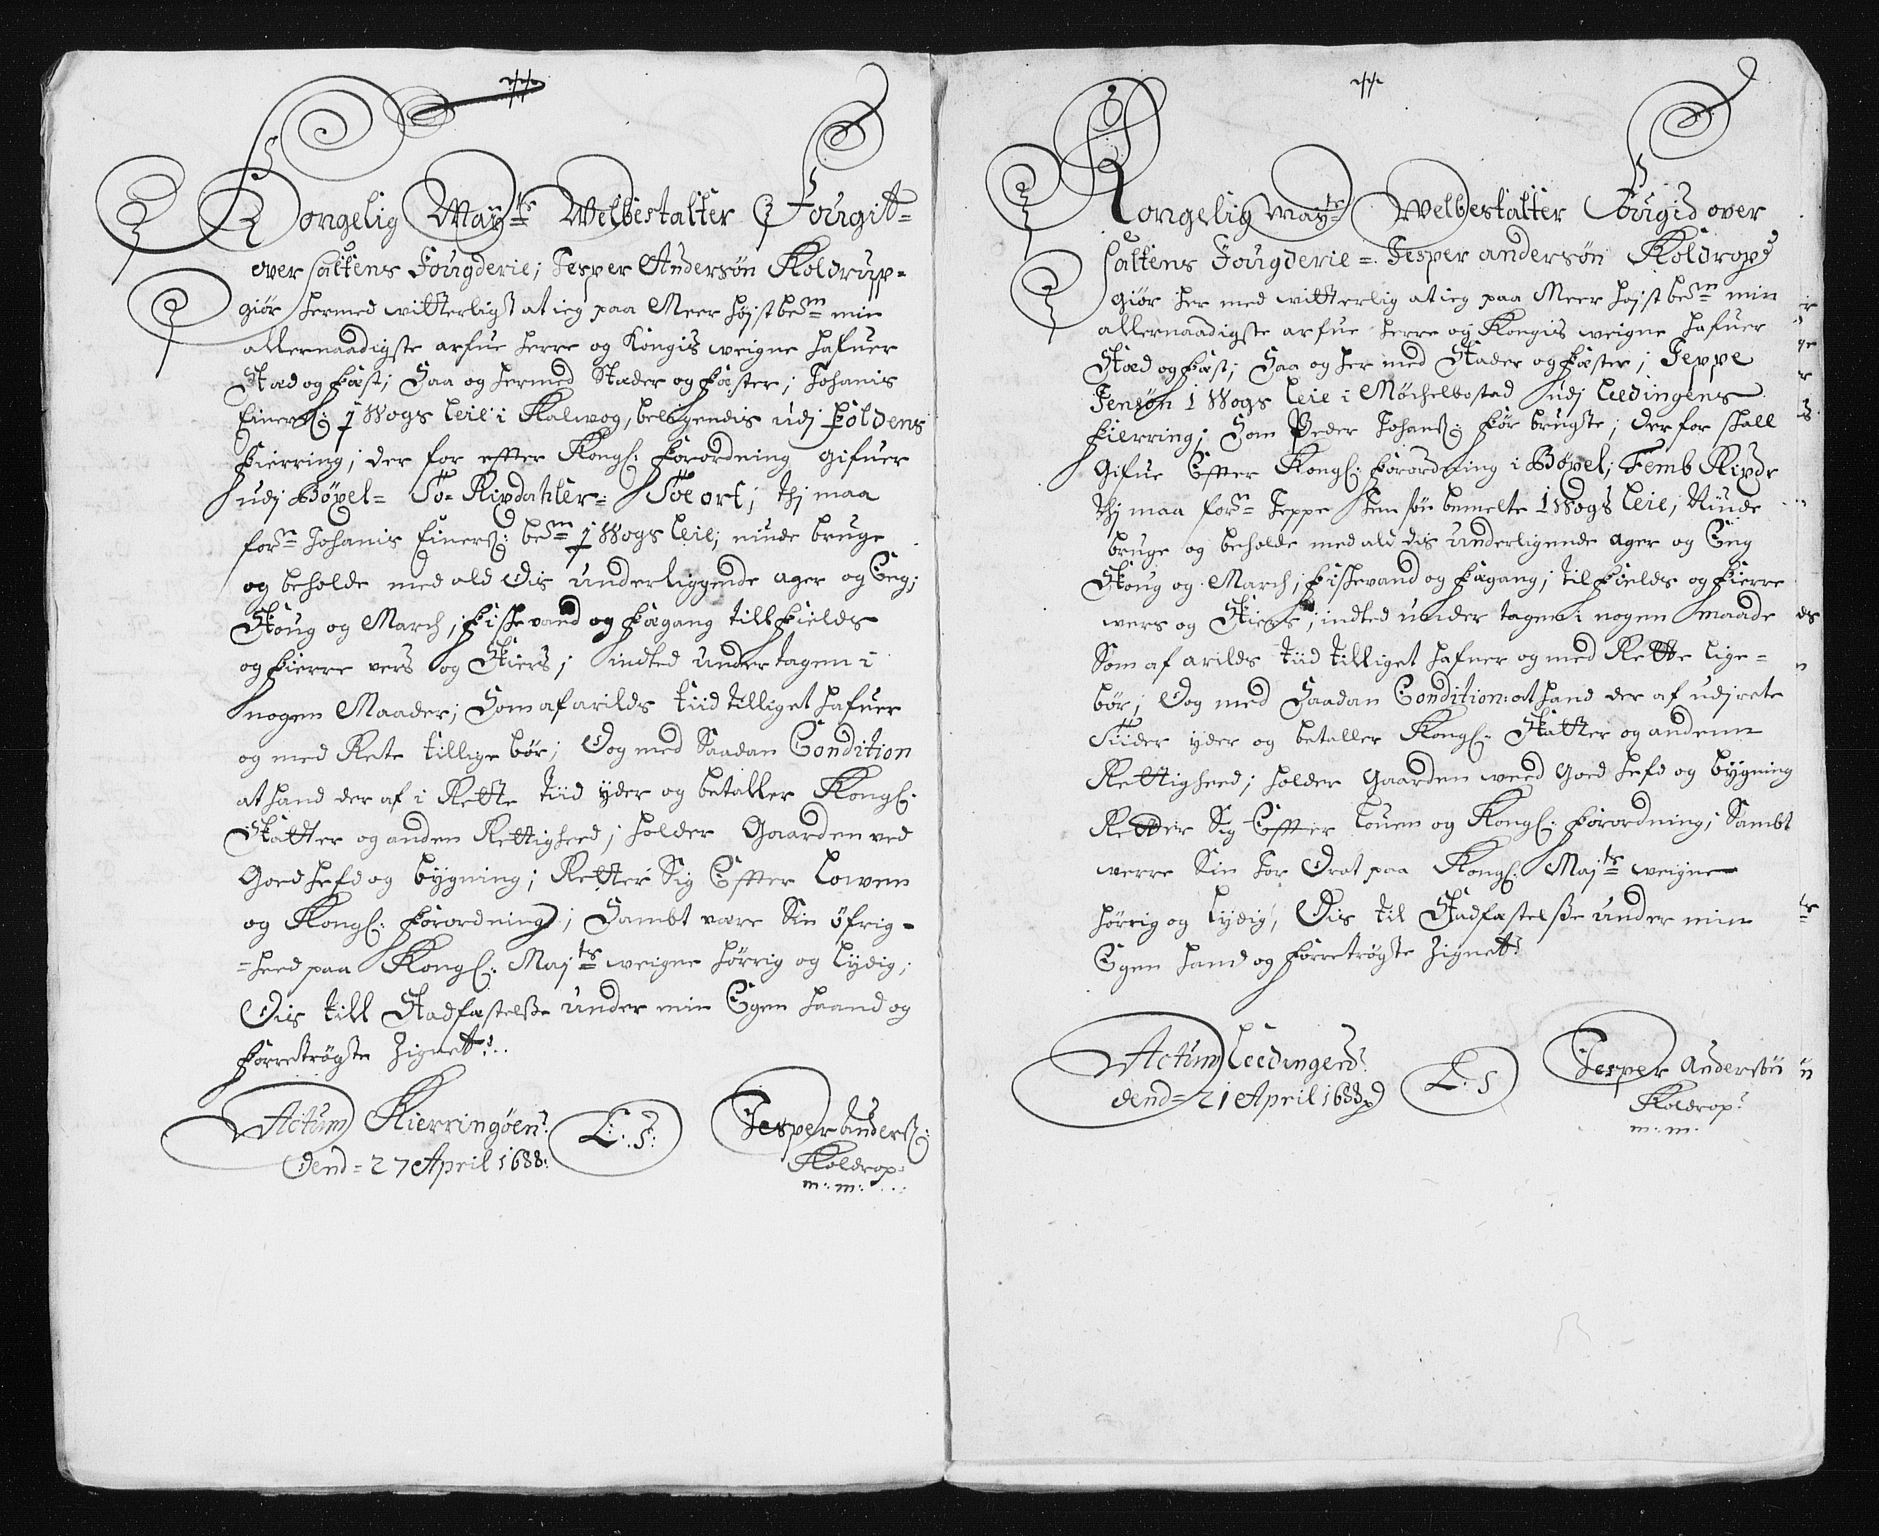 Kongelig May:ts Welbestalter Fougit=
over Saltens Fougderie; Jesper Andersøn Koldrup=
giør hermed witterligt at ieg paa Meer høystbe:m min
allernaadigste arfue herre og Kongis weigne hafuer
Stæd og Fæst; Saa og hermed Stæder og Fæster; Johanis
Einerß: 1 Wogs Leie i Kalwog, beligendis udj Foldens
Fierring; der for effter Kongl: Forordning gifuer
udj Bøxel= To= Rixdahler= Toe ort; thj maa
for:n Johanis Einerß: be:m 1 Wogs Leie; niude bruge
og beholde med ald dis underliggende ager og Eng;
Skoug og March; Fiskevand og Fægang till Fields
og Fierre vers og Skiers; indted undertagen i
nogen Maader; Som af arilds tiid tilliget hafuer
og med Rete tillige bør; Dog med Saadan Condition
at hand der af i Rette tiid yder og betaller Kongl:
Skatter og anden Rettigheed; holder Gaarden ved
Goed hefd og bygning; Retter Sig Effter Lowen
og Kongl: Forordning; Sambt være Sin øfrig=
=heed paa Kongl: Maj:ts weigne hørrig og Lydig;
Dis till Stadfæstelße under min Egen haand og
Forretrøgte Zignett:
Actum Kierringøen:
Dend= 27 April 1688:
L: S:
Jesper Anderß:
Koldrop:
m: m:

Kongelig May:ts Welbestalter Fougid over
Saltens Fougderie=: Jesper andersøn Koldrop:
giør her med witterlig at ieg paa Meer høystbe:m min
allernaadigste arfue herre og Kongis weigne hafuer
Stæd og Fæst; Saa og her med Stæder og Fæster; Jeppe
Jensøn 1 Wogs Leie i Møchelbostad udj Leedingens
Fierring; Som Peder Johanß: før brugte; derfor skall
Gifue Effter Kongl: Forordning i Bøxel; Femb Rixdr
thj maa for:n Jeppe Jensøn bemelte 1 Wogs Leie; Niude
bruge og beholde med ald dis underligende ager og Eng
Skoug og March; Fiskevand og Fægang; til Fields og Fierre
wers og Skiers; indted under tagen i nogen maade
Som af arilds tiid tilliget hafuer og med Rette lige=
bør; Dog med Saadan Condition: at hand der af udj rete
Tiider yder og betaller Kongl: Skatter og andenn
Rettigheed; holder Gaarden weed Goed hefd og bygning
Retter Sig Effter Louen og Kongl: Forordning; Sambt
werre Sin For Drat paa Kongl: Maj:ts weigne
hørrig og Lydig; Dis til Stadfæstelße under min
Egen hand og Forretrøgte Zignett:
Actum Leedingen:
dend= 21 April 1688
L: S
Jesper Andersøn
Koldrop:
m: m: